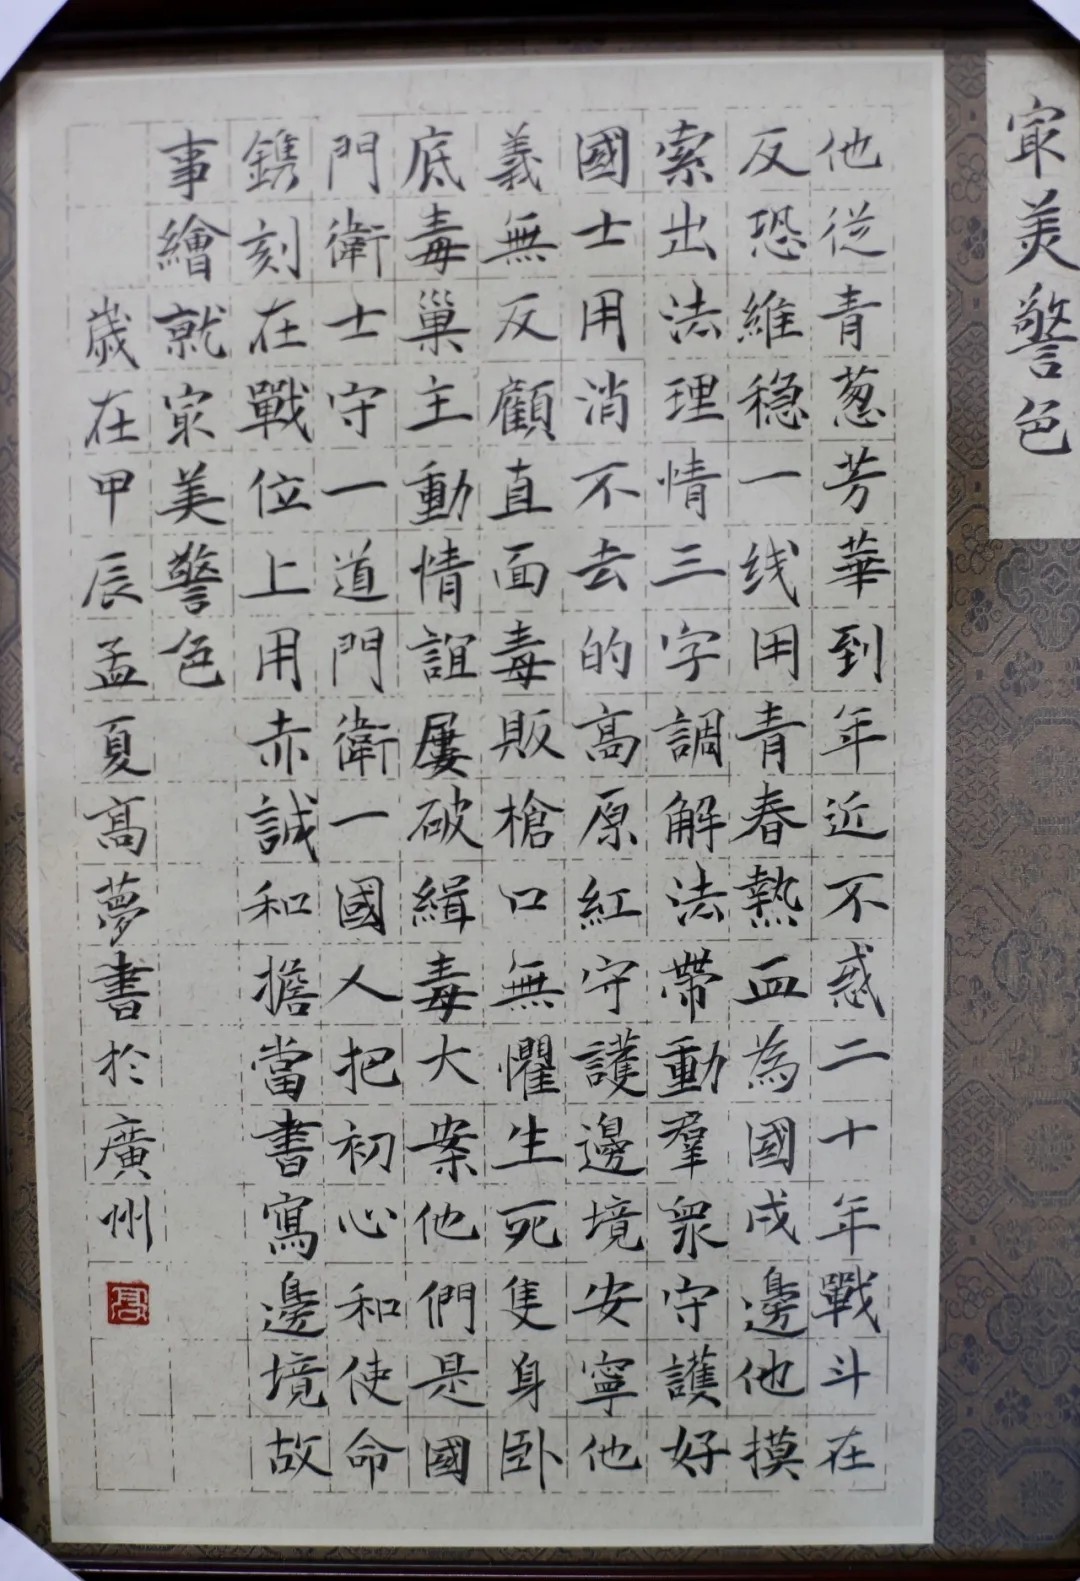 冣美警色
他従青葱芳華到年近不惑二十年戰斗在
反恐維穏一线用青春熱血為國戍邊他摸
索出法理情三字調解法帶動羣衆守護好
國士用消不去的高原紅守護邊境安寧他
義無反顧直面毒販槍口無懼生死隻身卧
底毒巢主動情誼屢破緝毒大案他們是國
門衛士守一道門衛一國人把初心和使命
鐫刻在戰位上用赤誠和擔當書寫邊境故
事繪就冣美警色
歲在甲辰孟夏高夢書於廣州
高